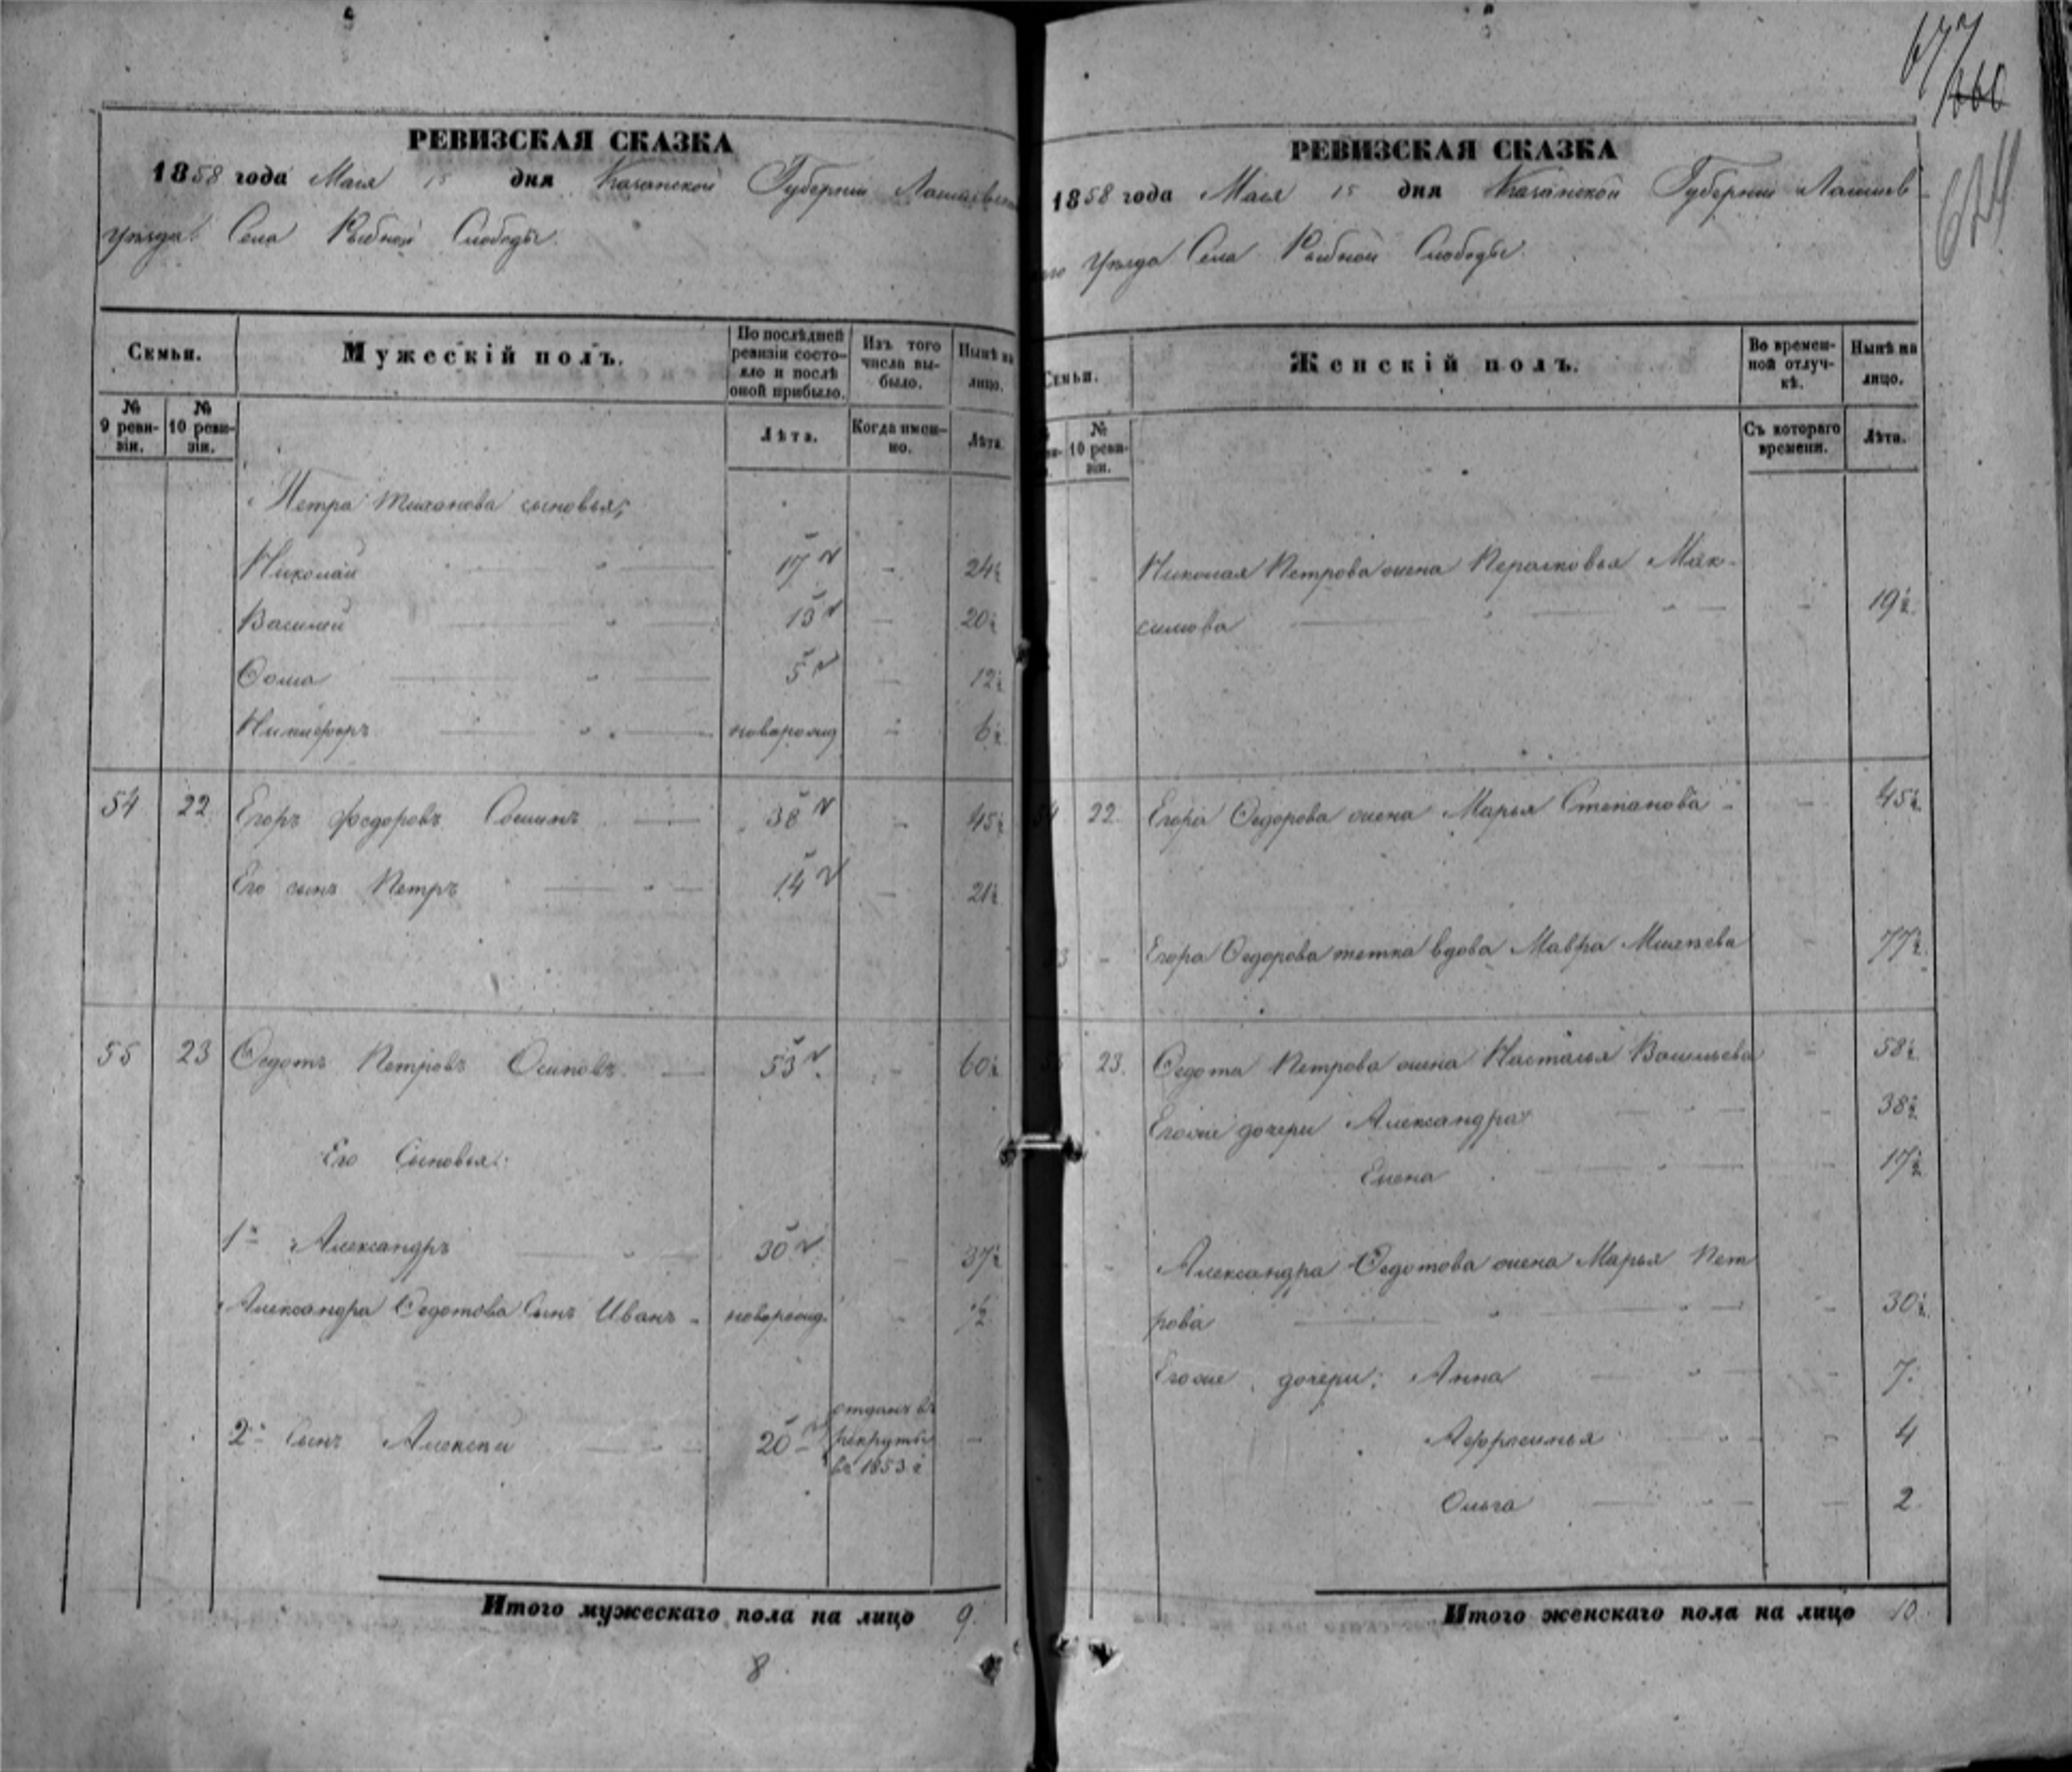 677
660
674
РЕВИЗСКАЯ СКАЗКА
1858 года Мая 15 дня Казанской Губернии Лаишевска
уѣзда Села Рыбной Слободы.
Семьи.
Мужескій полъ.
По послѣдней ревизіи состояло и послѣ оной прибыло.
Изъ того числа выбыло.
Нынѣ на лицо.
№ 9 ревизіи.
№ 10 ревизіи.
Лѣта.
Когда именно.
Лѣта.
Петра Тиханова сыновья;
Николай 17 - 24½
Василей 13 - 20½
Ѳома 5 - 12½
Никифоръ новорожд - 6½
54 22 Егоръ Федоровъ 38 - 45½
Его сынъ Петръ 14 - 21½
55 23 Ѳедотъ Петровъ Осиповъ 53 - 60½
Его Сыновья:
1й Александръ 30 - 37½
Александра Ѳедотова Сынъ Иванъ - новорожд. - ½
2й Сынъ Алексѣй 20 отданъ въ рекруты въ 1853 г -
Итого мужескаго пола на лицо 9.
8
РЕВИЗСКАЯ СКАЗКА
1858 года Мая 15 дня Казанской Губернии Лаишев
го Уѣзда Села Рыбной Слободы.
Семьи.
Женскій полъ.
Во временной отлучкѣ.
Нынѣ на лицо.
№ 10 ревизіи.
Съ котораго времени.
Лѣта.
Николая Петрова жена Перасковья Мак-
симова - 19½
54 22 Егора Ѳедорова жена Марья Степанова - 45½
Егора Ѳедорова тетка вдова Мавра - 77½
55 23. Ѳедота Петрова жена Настасья Васильева - 58½
Егоже дочери Александра - 38½
Елена - 17½
Александра Ѳедотова жена Марья Пет
рова - 30½
Егоже дочери: Анна - 7.
Афросинья - 4
Ольга - 2
Итого женскаго пола на лицо 10.